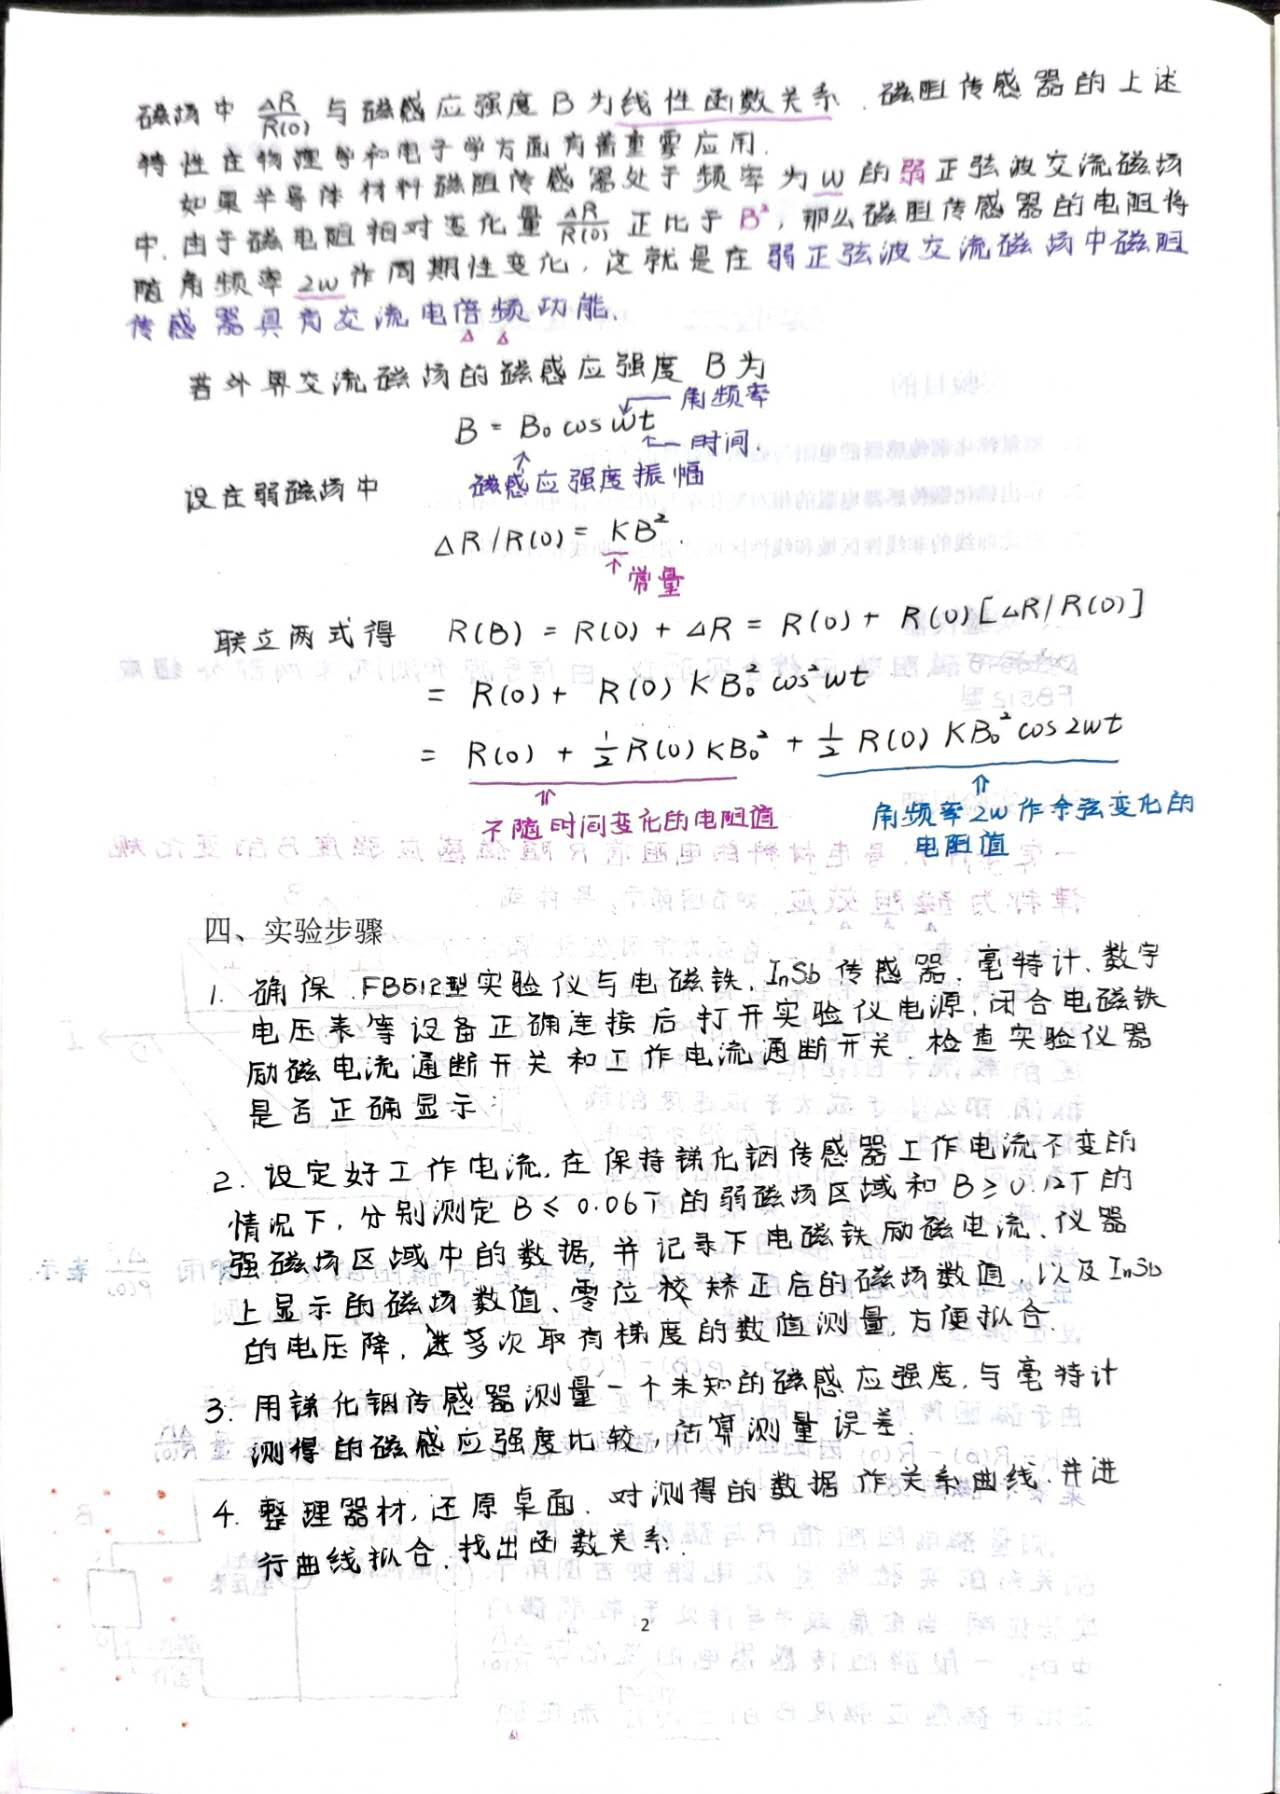 磁场中 ΔR/R(0) 与磁感应强度B为线性函数关系. 磁阻传感器的上述
特性在物理学和电子学方面有着重要应用.
如果半导体材料磁阻传感器处于频率为w的弱正弦波交流磁场
中,由于磁电阻相对变化量 ΔR/R(0) 正比于B²,那么磁阻传感器的电阻将
随角频率2w作周期性变化,这就是在弱正弦波交流磁场中磁阻
传感器具有交流电倍频功能.
若外界交流磁场的磁感应强度B为
角频率
B = B₀ cos wt
时间.
磁感应强度振幅
设在弱磁场中
ΔR/R(0) = KB².
常量
联立两式得 R(B) = R(0) + ΔR = R(0) + R(0)[ΔR/R(0)]
= R(0) + R(0) KB₀² cos²wt
= R(0) + 1/2 R(0) KB₀² + 1/2 R(0) KB₀² cos2wt
不随时间变化的电阻值
角频率2w作余弦变化的
电阻值
四、实验步骤
1. 确保FB512型实验仪与电磁铁、InSb传感器、毫特计、数字
电压表等设备正确连接后打开实验仪电源,闭合电磁铁
励磁电流通断开关和工作电流通断开关,检查实验仪器
是否正确显示;
2. 设定好工作电流,在保持锑化铟传感器工作电流不变的
情况下,分别测定B≤0.06T的弱磁场区域和B≥0.12T的
强磁场区域中的数据,并记录下电磁铁励磁电流、仪器
上显示的磁场数值、零位校矫正后的磁场数值以及InSb
的电压降,进多次取有梯度的数值测量,方便拟合.
3. 用锑化铟传感器测量一个未知的磁感应强度,与毫特计
测得的磁感应强度比较,估算测量误差.
4. 整理器材,还原桌面.对测得的数据作关系曲线,并进
行曲线拟合,找出函数关系.
2